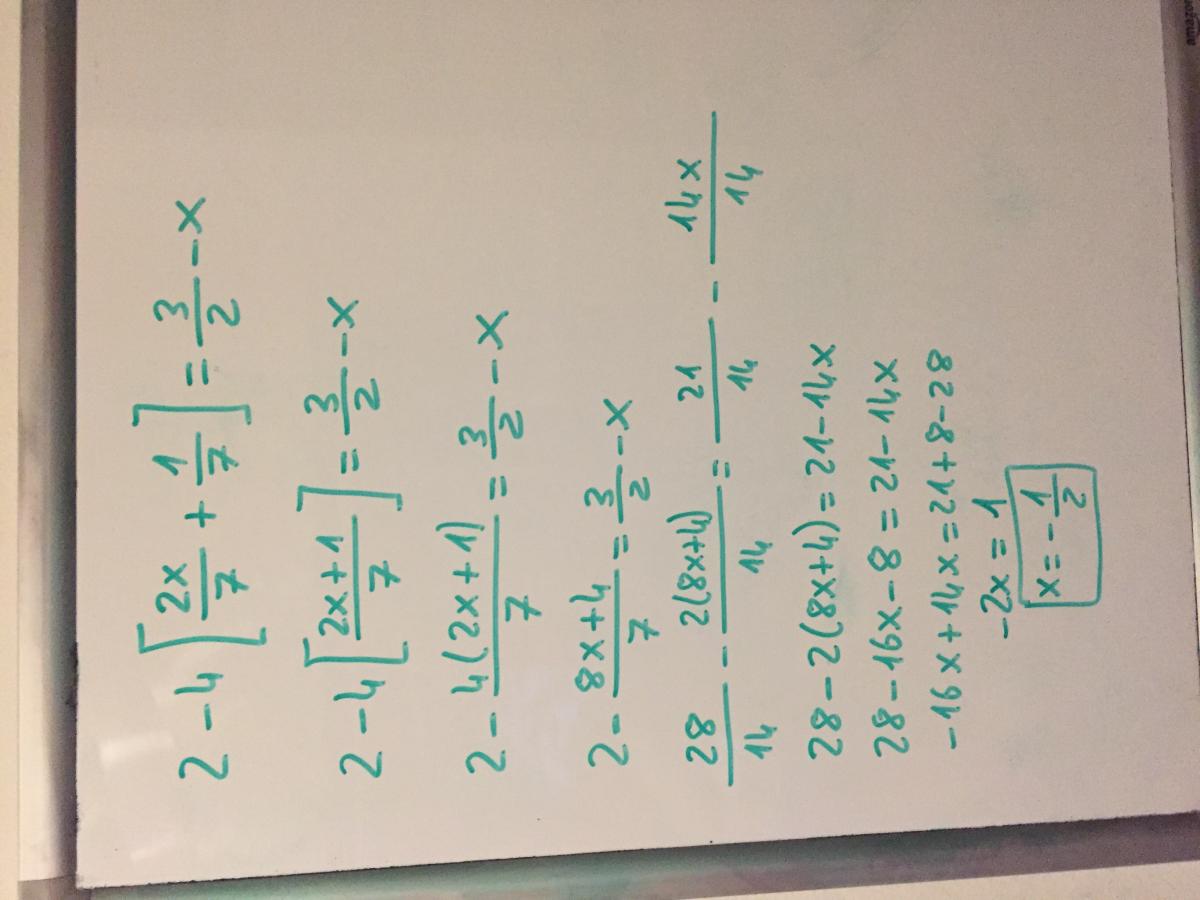 2 - 4 [2x/7 + 1/7] = 3/2 - x
2 - 4 [2x+1/7] = 3/2 - x
2 - 4(2x+1)/7 = 3/2 - x
2 - 8x+4/7 = 3/2 - x
28/14 - 2(8x+4)/14 = 21/14 - 14x/14
28 - 2(8x+4) = 21 - 14x
28 - 16x - 8 = 21 - 14x
-16x + 14x = 21 + 8 - 28
-2x = 1
x = -1/2